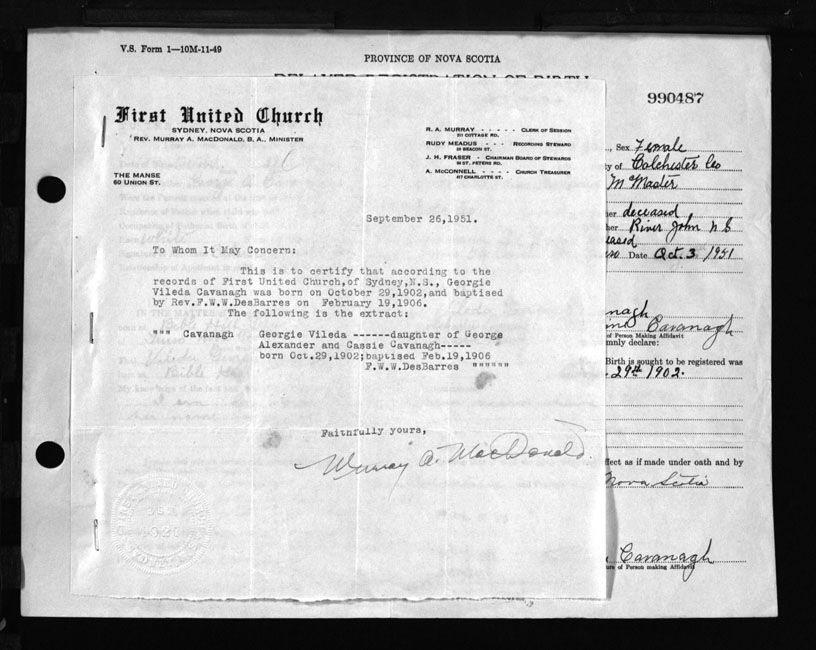 V.S. Form 1—10M-11-49
PROVINCE OF NOVA SCOTIA
DELAYED REGISTRATION OF BIRTH
990487
First United Church
SYDNEY, NOVA SCOTIA
REV. MURRAY A. MACDONALD, B. A., MINISTER
THE MANSE
60 UNION ST.
R. A. MURRAY - - - - - CLERK OF SESSION
211 COTTAGE RD.
RUDY MEADUS - - - RECORDING STEWARD
29 BEACON ST.
J. H. FRASER - CHAIRMAN BOARD OF STEWARDS
98 ST. PETERS RD.
A. MCCONNELL - - - - CHURCH TREASURER
47 CHARLOTTE ST.
September 26,1951.
To Whom It May Concern:
This is to certify that according to the
records of First United Church,of Sydney,N.S., Georgie
Vileda Cavanagh was born on October 29,1902,and baptised
by Rev.F.W.W.DesBarres on February 19,1906.
The following is the extract:
""" Cavanagh Georgie Vileda ------daugnter of George
Alexander and Cassie Cavanagh-----
born Oct.29,1902;baptised Feb.19,1906
F.W.W.DesBarres """"""
Faithfully yours,
Murray A. MacDonald.
Sex Female
of Colchester Co
McMaster
deceased
River John N S
Date Oct. 3 1951
Cavanagh
of Person Making Affidavit
mnly declare:
Birth is sought to be registered was
29th 1902.
ffect as if made under oath and by
Nova Scotia
Cavanagh
ure of Person making Affidavit